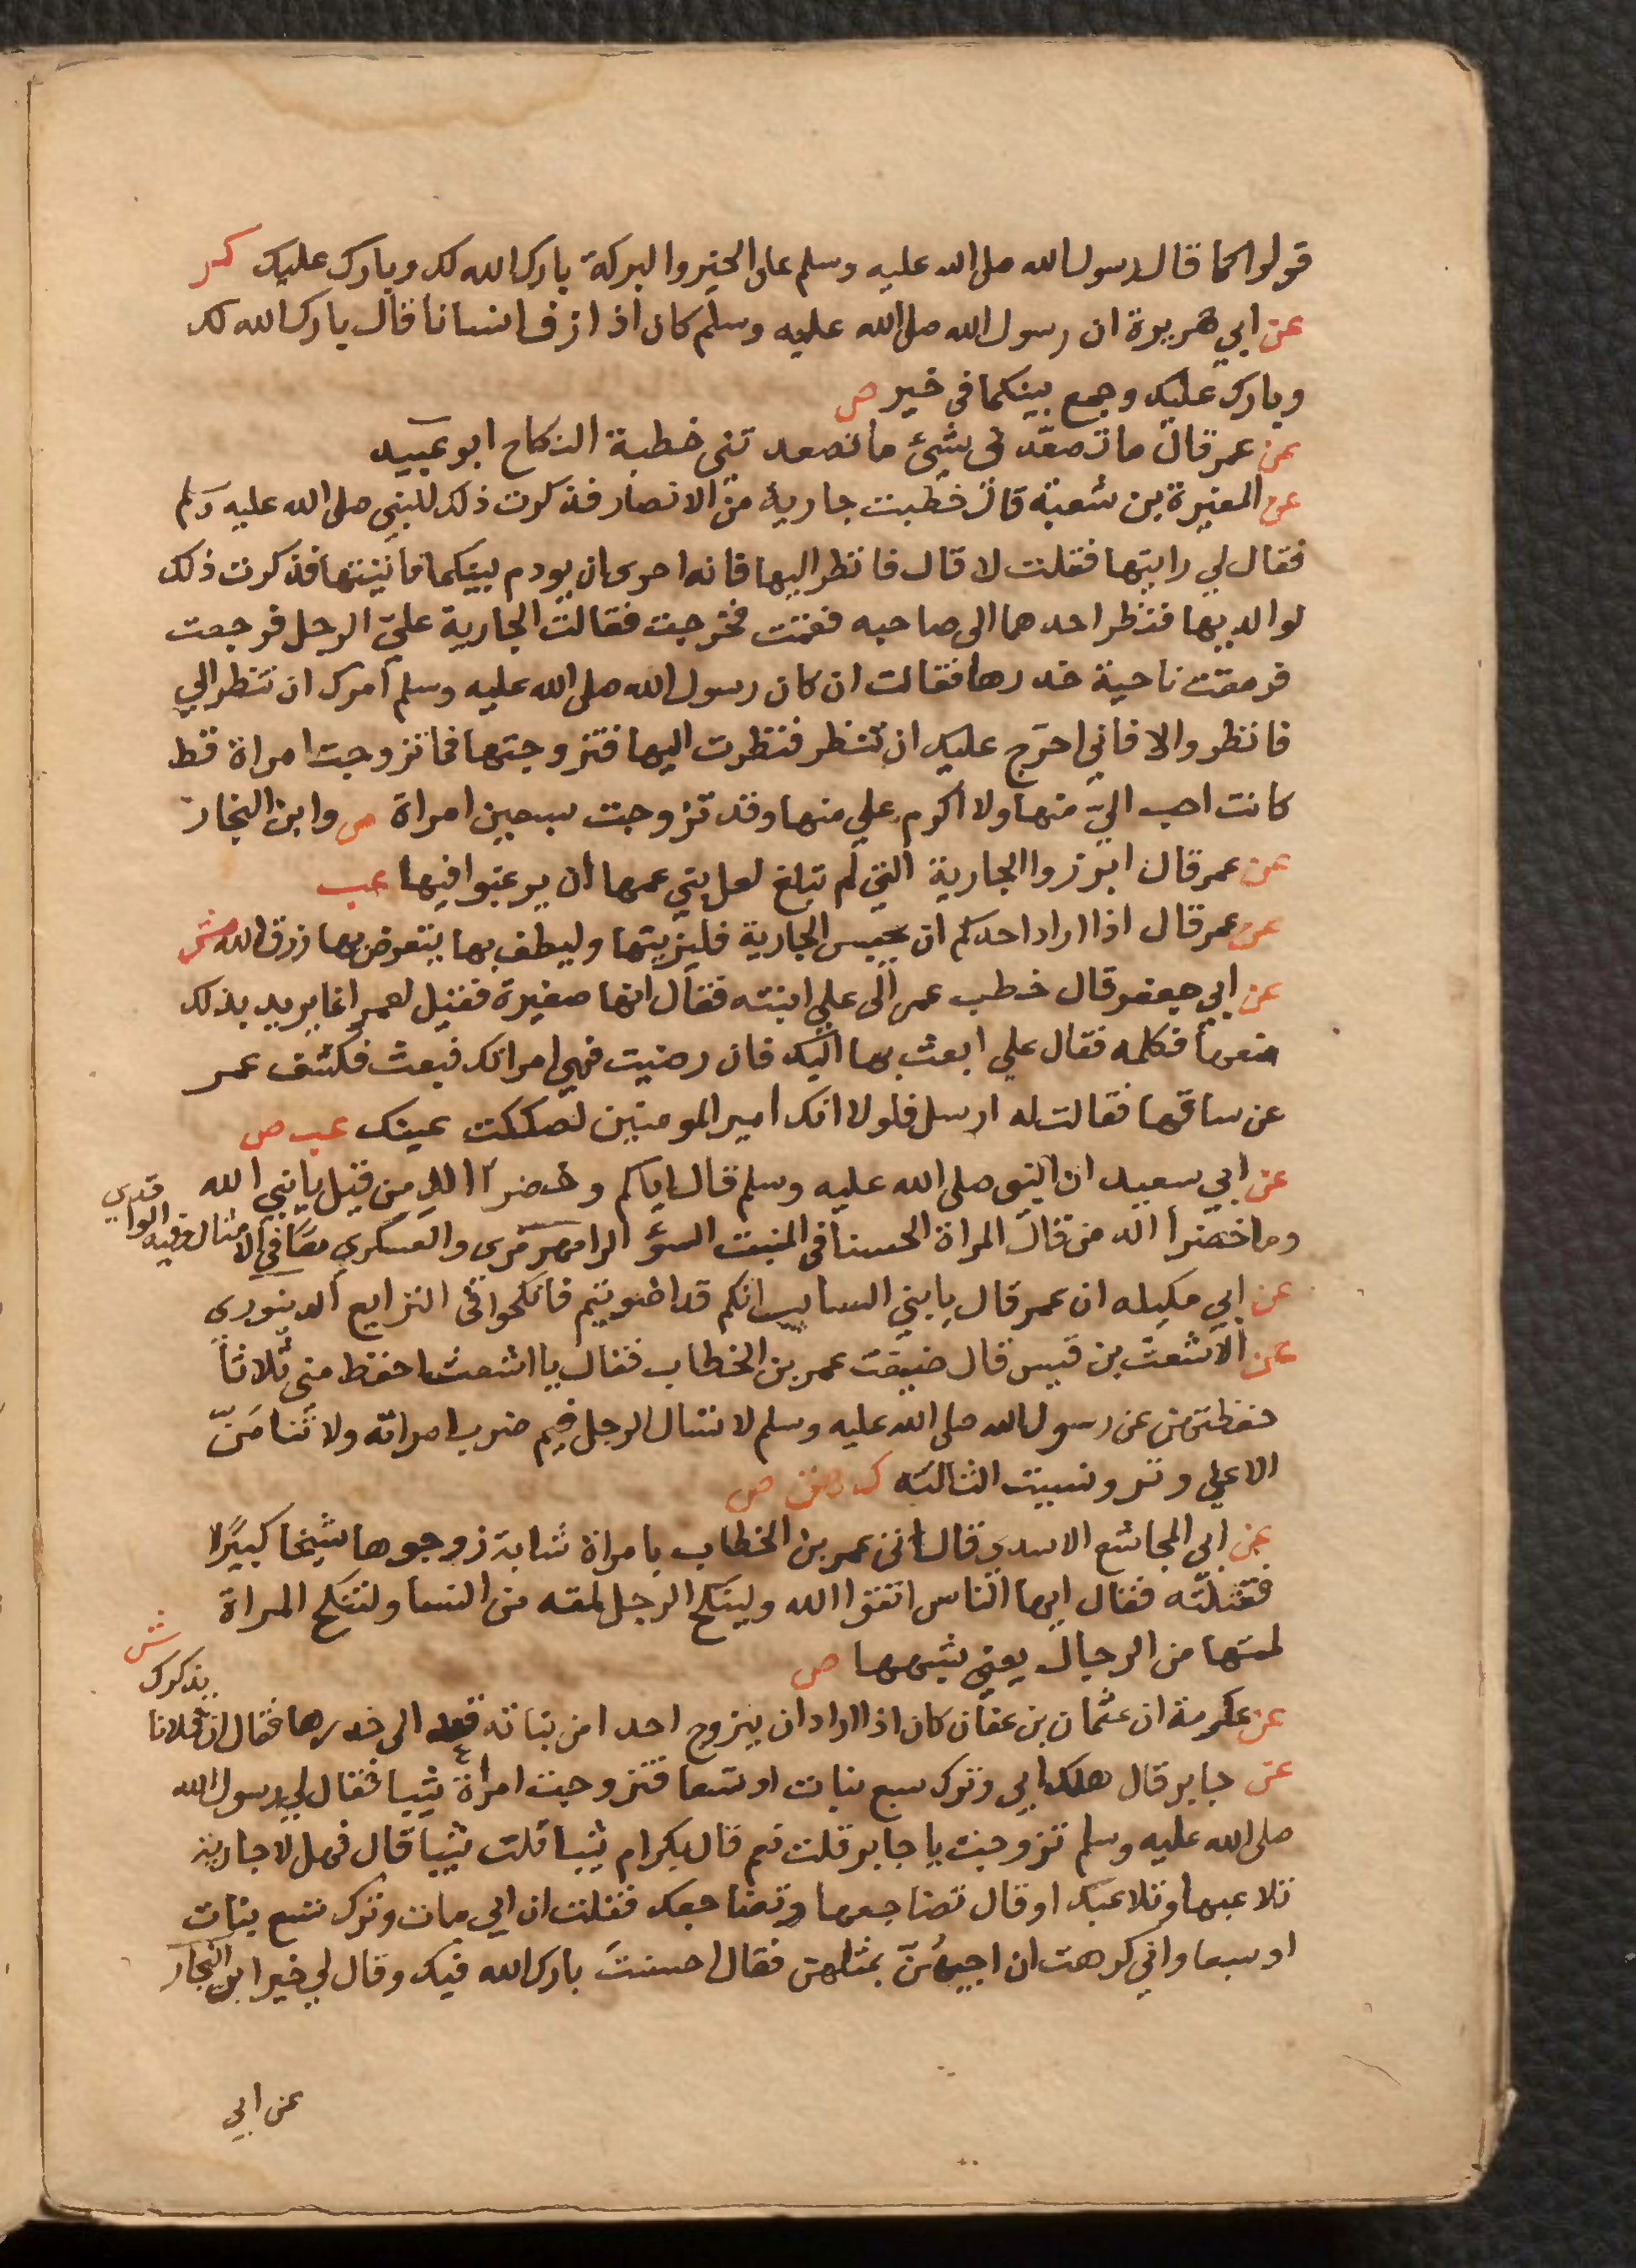 قولوا كما قال رسول الله صلى الله عليه وسلم على الخير والبركة بارك الله لك وبارك عليك كر
عن ابي هريرة ان رسول الله صلى الله عليه وسلم كان اذا ازف انسانا قال بارك الله لك
وبارك عليك وجمع بينكما في خير ص
عن عمر قال ما تصعّد في شيئ ما تصعد تني خطبة النكاح ابو عبيد
عن المغيرة بن شعبة قال خطبت جارية من الانصار فذكرت ذلك للنبي صلى الله عليه وسلم
فقال لي رايتها فقلت لا قال فانظر اليها فانه احرى ان يودم بينكما فاتيتها فذكرت ذلك
لوالديها فنظر احدهما الى صاحبه فقمت فخرجت فقالت الجارية عليّ الرجل فرجعت
فرمقت ناحية خدرها فقالت ان كان رسول الله صلى الله عليه وسلم امرك ان تنظر الي
فانظر والا فاني احرّج عليك ان تنظر فنظرت اليها فتزوجتها فما تزوجت امراة قط
كانت احب اليّ منها ولا اكرم علي منها وقد تزوجت سبعين امراة ص وابن النجار
عن عمر قال ابرزوا الجارية التي لم تبلغ لعل بني عمها ان يرغبوا فيها عب
عن عمر قال اذا اراد احدكم ان يحبس الجارية فليزينها وليطف بها يتعرض بها رزق الله ش
عن ابي جعفر قال خطب عمر الى علي ابنته فقال انها صغيرة فقيل لعمر انما يريد بذلك
منعها فكلمه فقال علي ابعث بها اليك فان رضيت فهي امراتك فبعث فكشف عمر
عن ساقها فقالت له ارسل فلولا انك امير المومنين لصككت عينك عب ص
عن ابي سعيد ان النبي صلى الله عليه وسلم قال اياكم وخضرا الدمن قيل يا نبي الله
وما خضرا الدمن قال المراة الحسنا في المنبت السؤ الرامهرمزي والعسكري معا في الامثال وفيه الواقدي
عن ابي مكيله ان عمر قال يا بني السايب انكم قد اضويتم فانكحوا في النزايع الدينوري
عن الاشعث بن قيس قال ضيفت عمر بن الخطاب فقال يا اشعث احفظ مني ثلاثا
حفظتهن عن رسول الله صلى الله عليه وسلم لا تسال الرجل فيم ضرب امراته ولا تنامَنّ
الا علي وتر ونسيت الثالثه ك ص
عن ابي المجاشع الاسدي قال اتى عمر بن الخطاب بامراة شابة زوجوها شيخا كبيرًا
فقتلته فقال ايها الناس اتقوا الله ولينكح الرجل لمته من النسا ولتنكح المراة
لمتها من الرجال يعني شبهها ص
عن عكرمة ان عثمان بن عفان كان اذا اراد ان يزوج احدا من بناته قعد الى خدرها فقال ان فلانا يذكرك ش
عن جابر قال هلك ابي وترك سبع بنات او تسعا فتزوجت امراة ثيبا فقال لي رسول الله
صلى الله عليه وسلم تزوجت يا جابر قلت نعم قال بكرا ام ثيبا قلت ثيبا قال فهلا جارية
تلاعبها وتلاعبك او قال تضاجعها وتضاجعك فقلت ان ابي مات وترك تسع بنات
او سبعا واني كرهت ان اجيئهُنّ بمثلهن فقال احسنتَ بارك الله فيك وقال لي خيرا ابن النجار
عن ابي